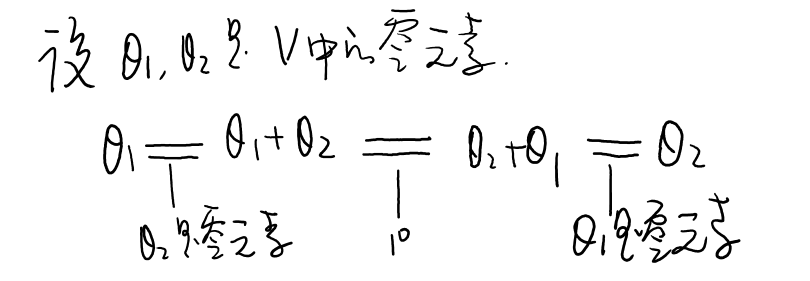 设 θ₁, θ₂ 是 V 中的零元素.
θ₁ = θ₁+θ₂ = θ₂+θ₁ = θ₂
θ₂是零元素 1° θ₁是零元素